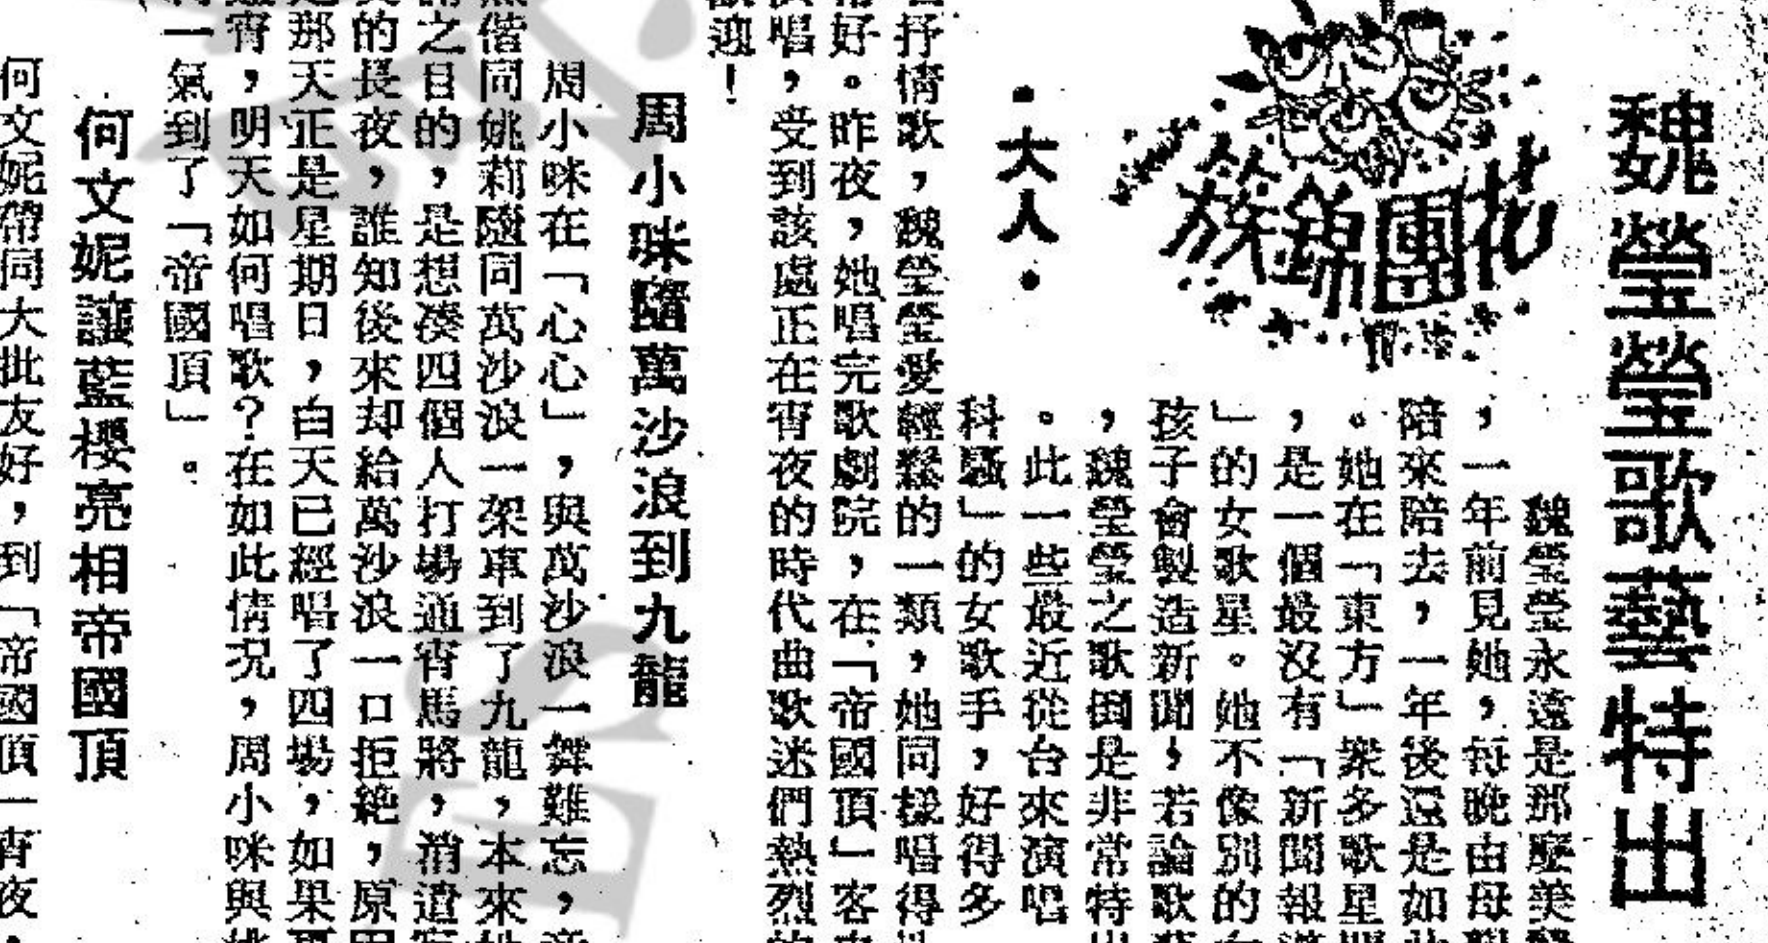 魏瑩瑩歌藝特出
花團錦簇
·大人·
魏瑩瑩永遠是那麼美
，一年前見她，每晚由母親
陪來陪去，一年後還是如此
。她在「東方」衆多歌星
，是一個最沒有「新聞報
」的女歌星。她不像別的女
孩子會製造新聞，若論歌藝
，魏瑩瑩之歌倒是非常特出
。此一些最近從台來演唱
科騷」的女歌手，好得多
抒情歌，魏瑩瑩愛輕鬆的一類，她同樣唱得
常好。昨夜，她唱完歌劇院，在「帝國頂」客
唱，受到該處正在宵夜的時代曲歌迷們熱烈的
歡迎！
周小咪隨萬沙浪到九龍
周小咪在「心心」，與萬沙浪一舞難忘，
偕同姚莉隨同萬沙浪一架車到了九龍，本來
之目的，是想湊四個人打場通宵馬將，消遣
的長夜，誰知後來却給萬沙浪一口拒絕，原因
那天正是星期日，白天已經唱了四場，如果再
通宵，明天如何唱歌？在如此情況，周小咪與姚
一氣到了「帝國頂」。
何文妮讓藍櫻亮相帝國頂
何文妮帶同大批友好，到「帝國頂一宵夜，